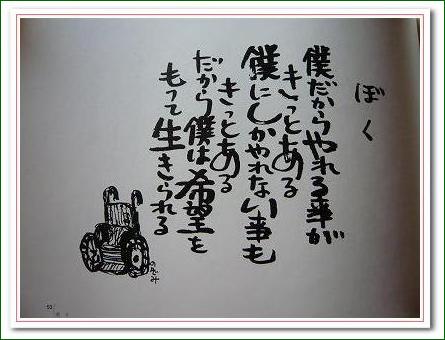 ぼく
僕だからやれる事が
きっとある
僕にしかやれない事も
きっとある
だから僕は希望を
もって生きられる
のぞみ